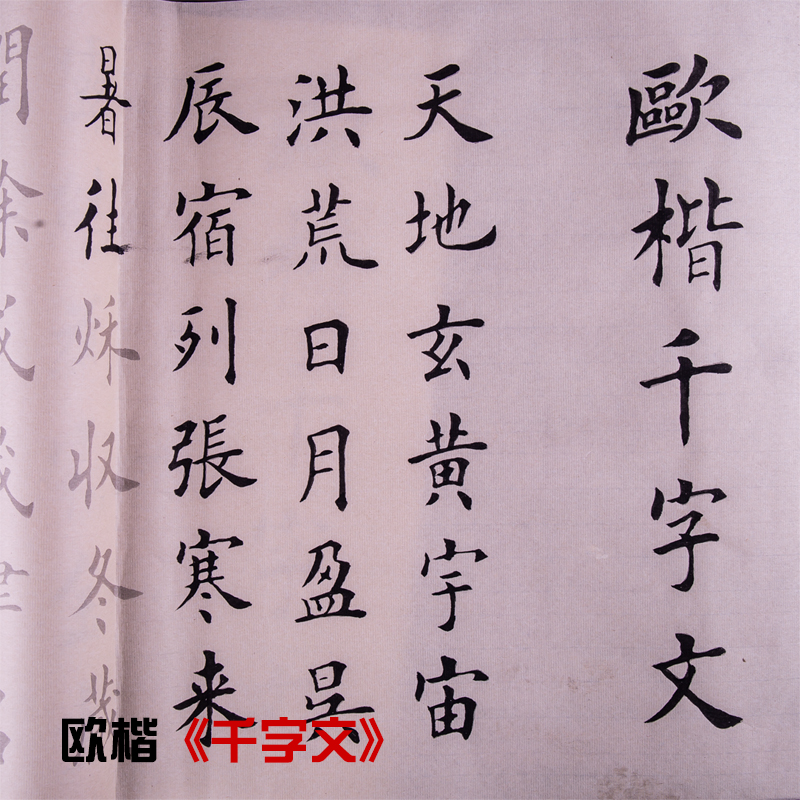 歐楷千字文
天地玄黄宇宙
洪荒日月盈昃
辰宿列張寒来
暑往秋收冬藏
閏餘成歲
欧楷《千字文》